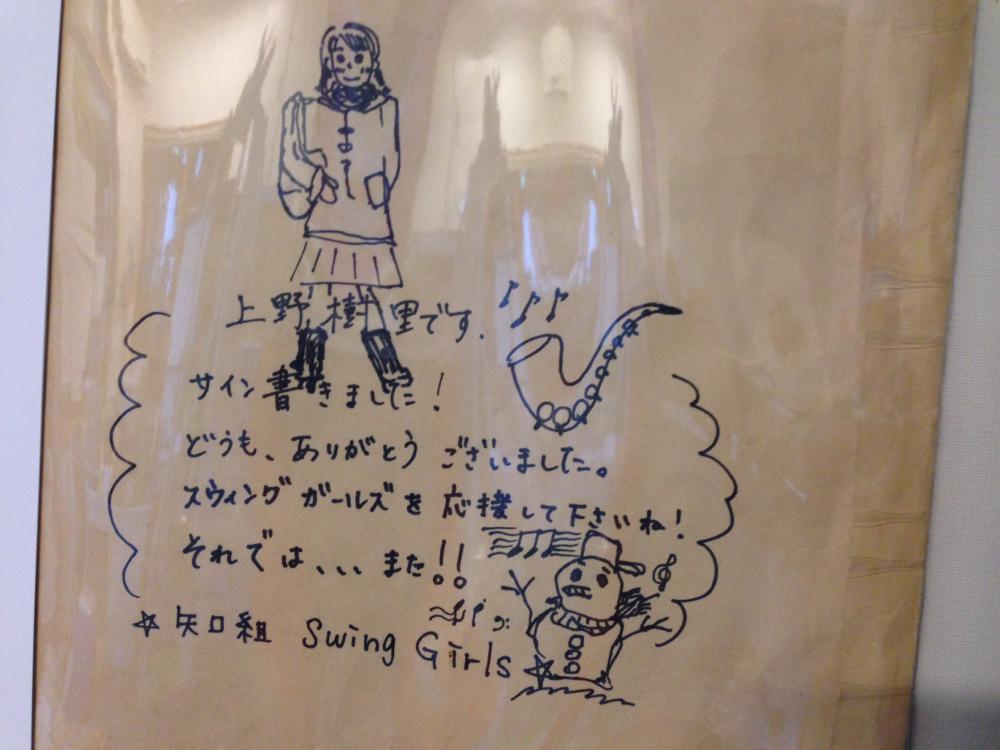 上野樹里です.
サイン書きました!
どうも、ありがとうございました。
スウィングガールズを応援して下さいね!
それでは、、、また!!
☆矢口組 Swing Girls☆